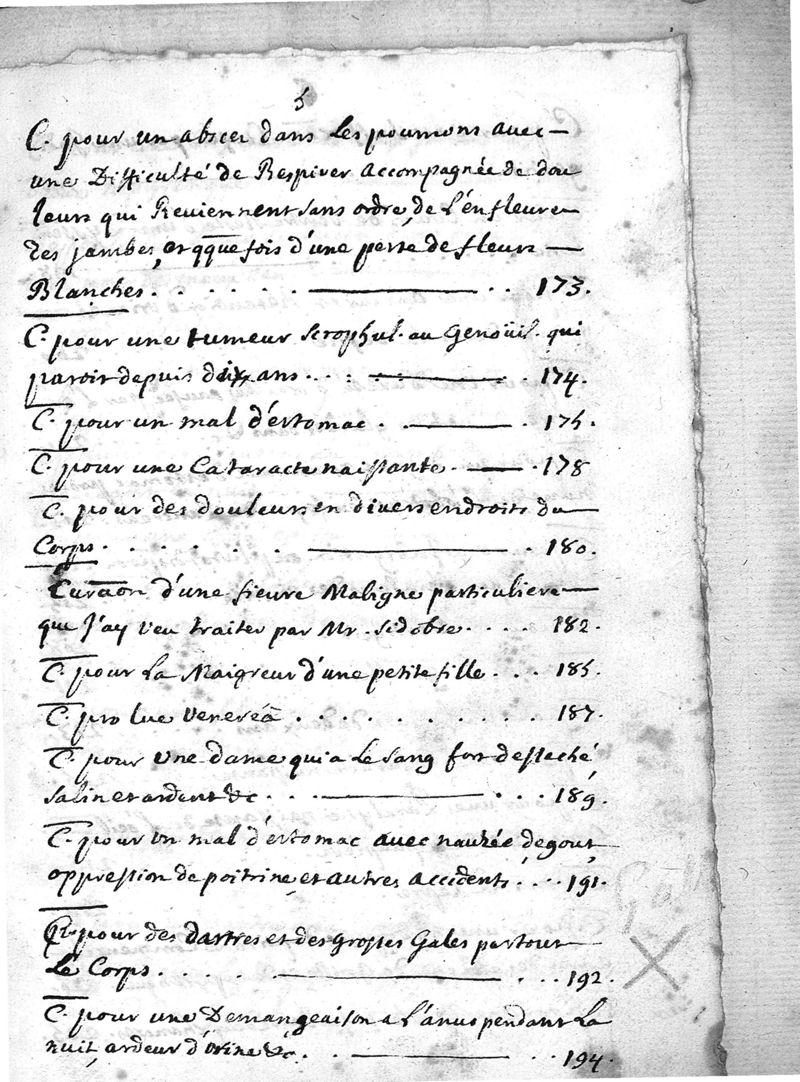 5
C. pour un absce dans Les poumons avec
une Difficulté de Respirer accompagnée de dou
leurs qui Reviennent sans ordre, de L'enfleure
des jambes, et qque fois d'une perte de fleurs
Blanches. . . . . . . . 173.
C. pour une tumeur scrophul. au Genoüil. qui
paroit depuis dix ans . . : . 174.
C. pour un mal d'estomac . . 175.
C. pour une Cataracte naissante . . 178
C. pour des douleurs en divers endroits du
Corps . . . . . . . 180.
Curaon d'une fievre Maligne particuliere
que J'ay veu traiter par Mr. Sidobre . . . . 182.
C. pour La Maigreur d'une petite fille . . . 185.
C. pro lue venereâ . . . . . . . 187.
C. pour une dame qui a Le sang fort desseché
salin et ardent &c . . . . . . 189.
C. pour un mal d'estomac avec nausée degout
oppression de poitrine et autres accidents . . . 191.
C. pour des dartres et des grosses Gales partout
Le Corps . . . . . . . . 192.
C. pour une Demangeaison a L'anus pendant La
nuit, ardeur d'urine &c. . . . . 194.